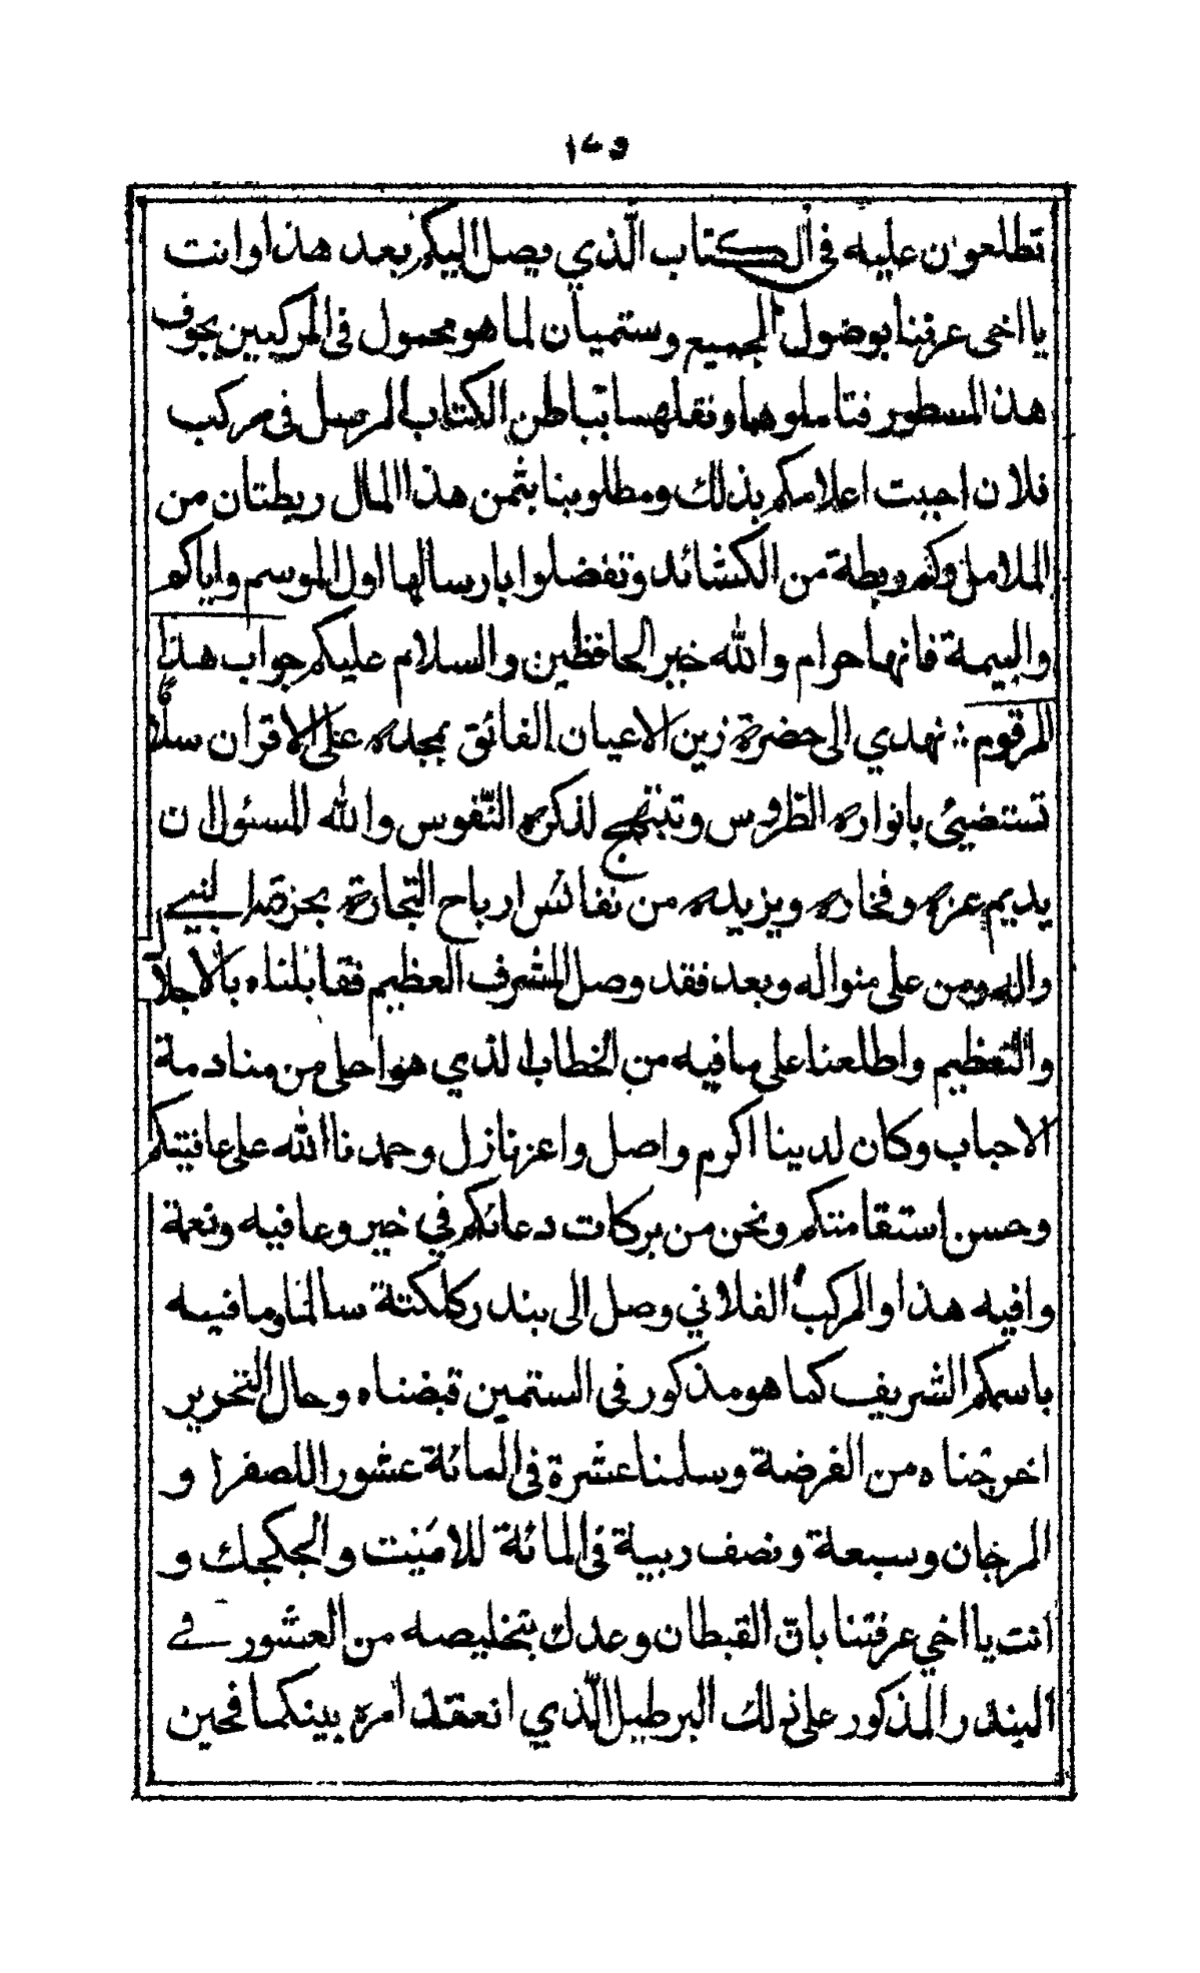 تطلعون عليه في الكتاب الّذي يصل اليكم بعد هذا وانت
يا اخي عرفنا بوصول الجميع وستميان لما هو محمول في المركبين بجوف
هذ المسطور فتاملوهما ونقلهما بباطن الكتاب المرسل في مركب
فلان احببت اعلامكم بذلك ومطلوبنا بثمن هذا المال ربطتان من
الململ وكم ربطة من الكشائد وتفضلوا بارسالها اول الموسم واياكم
والبيمة فانها حرام والله خير الحافظين والسلام عليكم جواب هذا
المرقوم : نهدي الى حضرة زين الاعيان الفائق بمجده على الاقران سلاما
تستضيئ بانواره الطّروس وتبتهج لذكره النّفوس والله المسئول ان
يديم عزه وفخاره ويزيده من نفائس ارباح التّجارة بحزمة النبي
واله ومن على منواله وبعد فقد وصل المشرف العظيم فقابلناه بالاجلال
والتعظيم واطلعنا على ما فيه من الخطاب الذي هو احلى من منادمة
الاحباب وكان لدينا اكرم واصل واعز نازل وحمدنا الله على عافيتكم
وحسن استقامتكم ونحن من بركات دعائكم في خير وعافيه ونعمة
وافيه هذا والمركب الفلاني وصل الى بندر كلكتة سالما وما فيه
باسمكم الشريف كما هو مذكور في الستمين قبضناه وحال التحرير
اخرجناه من الفرضة وسلمنا عشرة في المائة عشور اللصفر و
المرجان وسبعة ونصف ربية في المائة للامنيت والجكجك و
انت يا اخي عرفتنا بانّ القبطان وعدك بتخليصه من العشور في
البندر المذكور على ذلك البرطيل الّذي انعقد امره بينكما فحين